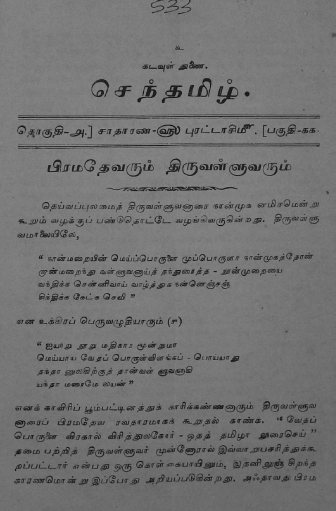 533
உ
கடவுள் துணை.
செந்தமிழ்.
தொகுதி-அ.] சாதாரண-ஹு புரட்டாசிமீ. [பகுதி-கக
பிரமதேவரும் திருவள்ளுவரும்
தெய்வப்புலமைத் திருவள்ளுவனாரை நான்முக னவதாரமென்று
கூறும் வழக்குப் பண்டுதொட்டே வழங்கிவருகின்றது. திருவள்ளு
வமாலையிலே,
“ நான்மறையின் மெய்ப்பொருளை முப்பொருளா நான்முகத்தோன்
றான்மறைந்து வள்ளுவனாய்த் தந்துரைத்த - நூன்முறையை
வந்திக்க சென்னிவாய் வாழ்த்துக நன்னெஞ்சஞ்
சிந்திக்க கேட்க செவி ”
என உக்கிரப் பெருவழுதியாரும் (ச)
“ ஐயாறு நூறு மதிகார மூன்றுமா
மெய்யாய வேதப் பொருள்விளங்கப் - பொய்யாது
தந்தா னுலகிற்குத் தான்வள் ளுவனாகி
யந்தா மரைமே லயன் ”
எனக் காவிரிப் பூம்பட்டினத்துக் காரிக்கண்ணனாரும் திருவள்ளுவ
னாரைப் பிரமதேவ ரவதாரமாகக் கூறுதல் காண்க. “ வேதப்
பொருளை விரகால் விரித்துலகோர் - ஓதத் தமிழா லுரைசெய் ”
தமை பற்றித் திருவள்ளுவர் முன்னோரால் இவ்வாறுபசரித்துக்க
றப்பட்டார் என்பது ஒரு கொள்கையாயினும், இதனினுஞ் சிறந்த
காரணமொன்று இப்போது அறியப்படுகின்றது. அஃதாவது பிரம